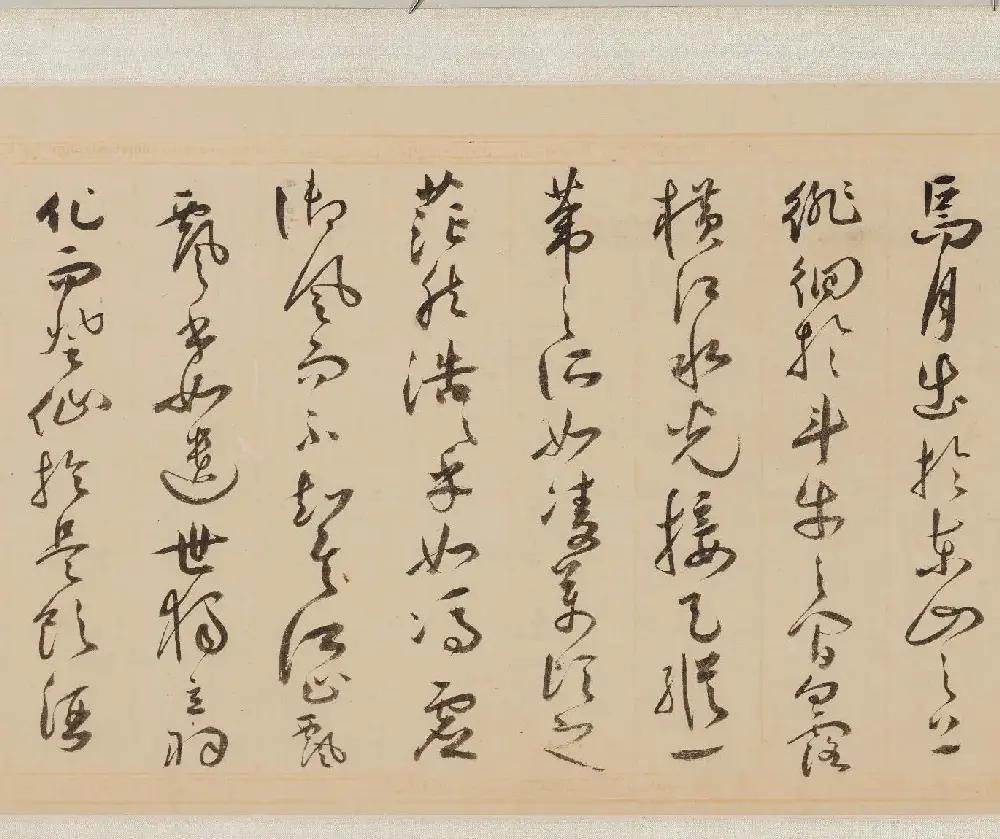 焉月出於東山之上
徘徊於斗牛之間白露
橫江水光接天縱一
葦之所如凌萬頃之
茫然浩〻乎如馮虛
御風而不知其所止飄
飄乎如遺世獨立羽
化而登仙於是飲酒